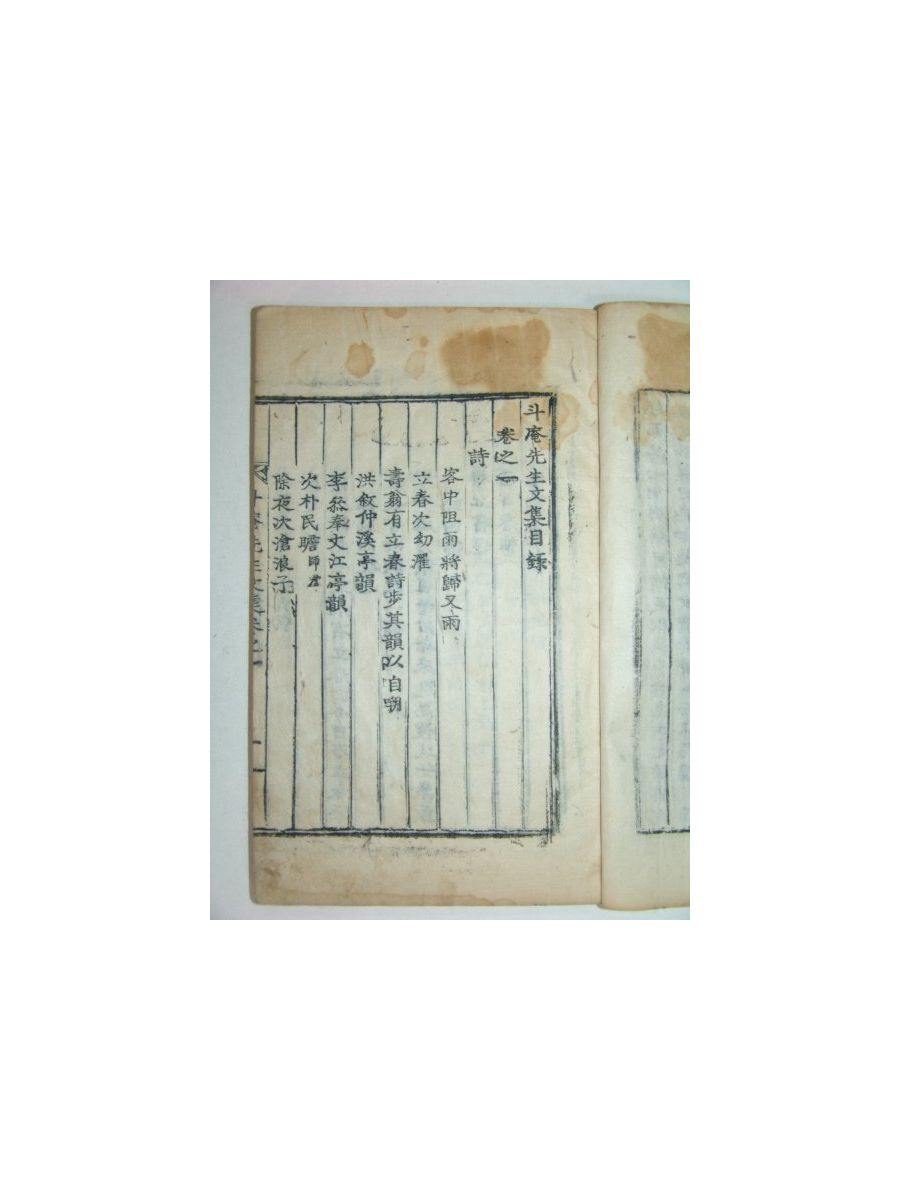 斗庵先生文集目録
卷之一
詩
客中阻雨將歸又雨
立春次幼濯
壽翁有立春詩步其韻以自嘲
洪敘仲溪亭韻
李叅奉文江亭韻
次朴民瞻師
除夜次滄浪子
斗庵先生文集卷之一